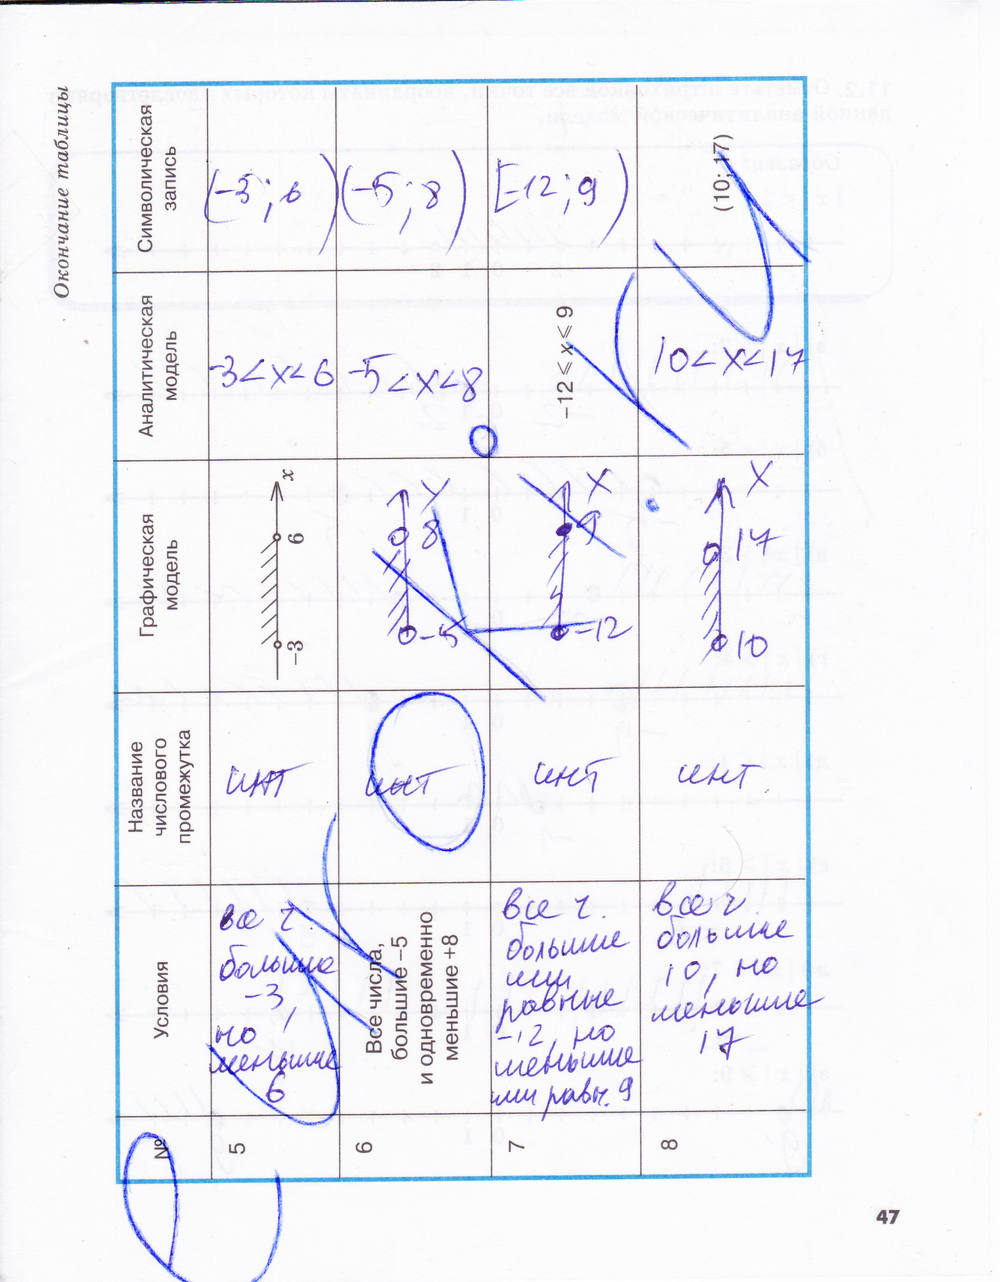 Окончание таблицы
№
Условия
Название
числового
промежутка
Графическая
модель
Аналитическая
модель
Символическая
запись
5
все ч.
больше
-3,
но
меньше
6
инт
-3
6
x
-3<x<6
(-3; 6)
6
Все числа,
большие –5
и одновременно
меньшие +8
инт
-5
8
-5<x<8
(-5; 8)
7
все ч.
больше
или
равные
-12, но
меньше
или равн. 9
инт
-12
9
X
–12 ⩽ x ⩽ 9
[-12; 9)
8
все ч.
больше
10, но
меньше
17
инт.
10
17
X
10<x<17
(10; 17)
47